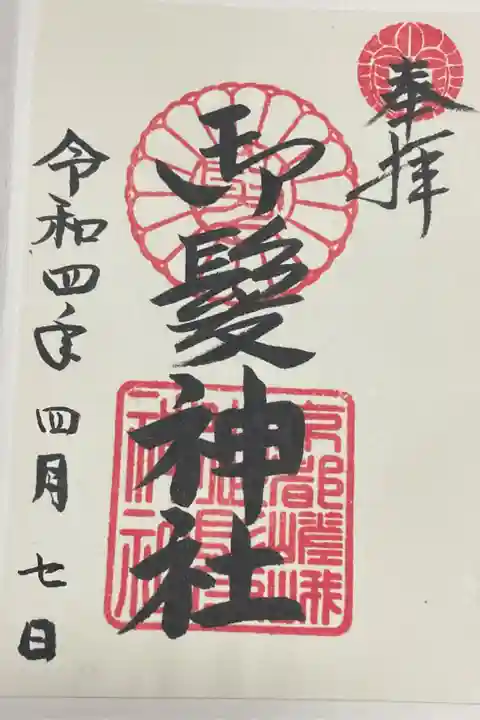 奉拝
御髪神社
京都嵯峨
神社
令和四年 四月 七日